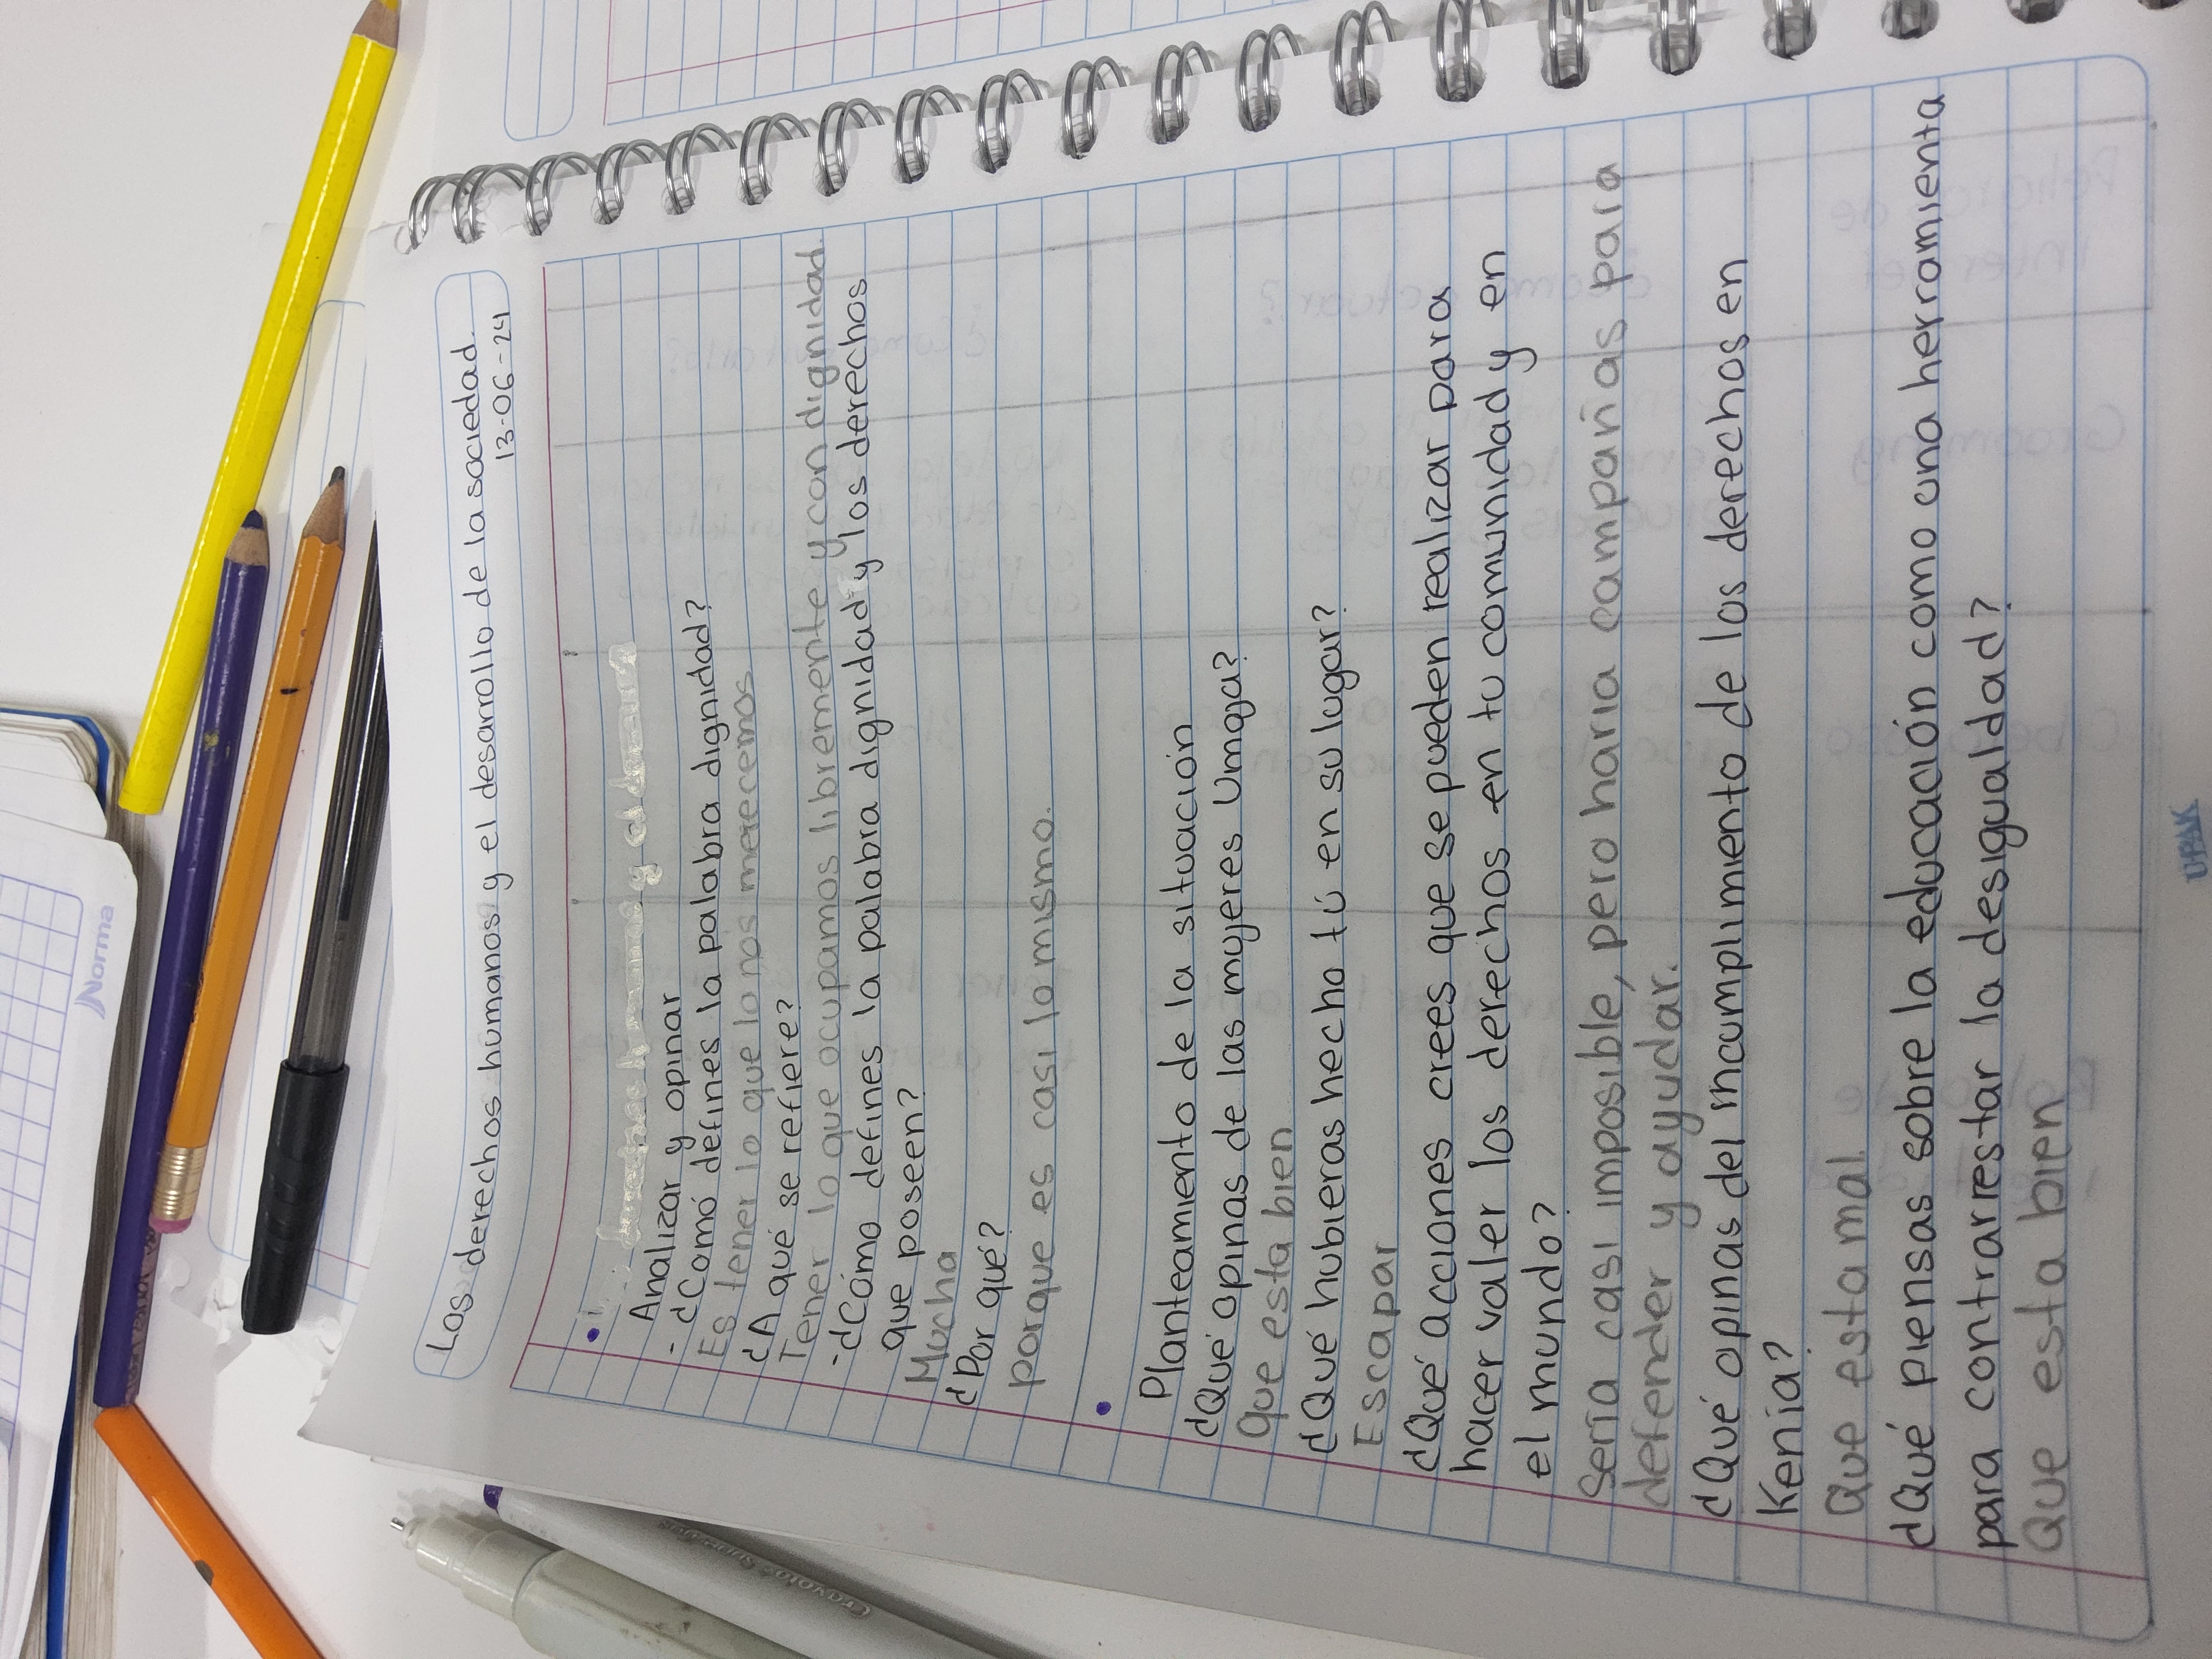 Los derechos humanos y el desarrollo de la sociedad.
13-06-24
Analizar y opinar
- ¿Comó defines la palabra dignidad?
Es tener lo que lo nos merecemos
¿A qué se refiere?
Tener lo que ocupamos libremente y con dignidad.
- ¿Cómo defines la palabra dignidad y los derechos
que poseen?
Mucha
¿Por qué?
porque es casi lo mismo.
Planteamiento de la situación
¿Qué opinas de las mujeres Umoja?
Que esta bien
¿Qué hubieras hecho tú en su lugar?
Escapar
¿Qué acciones crees que se pueden realizar para
hacer valer los derechos en tu comunidad y en
el mundo?
Sería casi imposible, pero haria campañas para
defender y ayudar.
¿Qué opinas del incumplimiento de los derechos en
Kenia?
Que esta mal.
¿Qué piensas sobre la educación como una herramienta
para contrarrestar la desigualdad?
Que esta bien
Norma